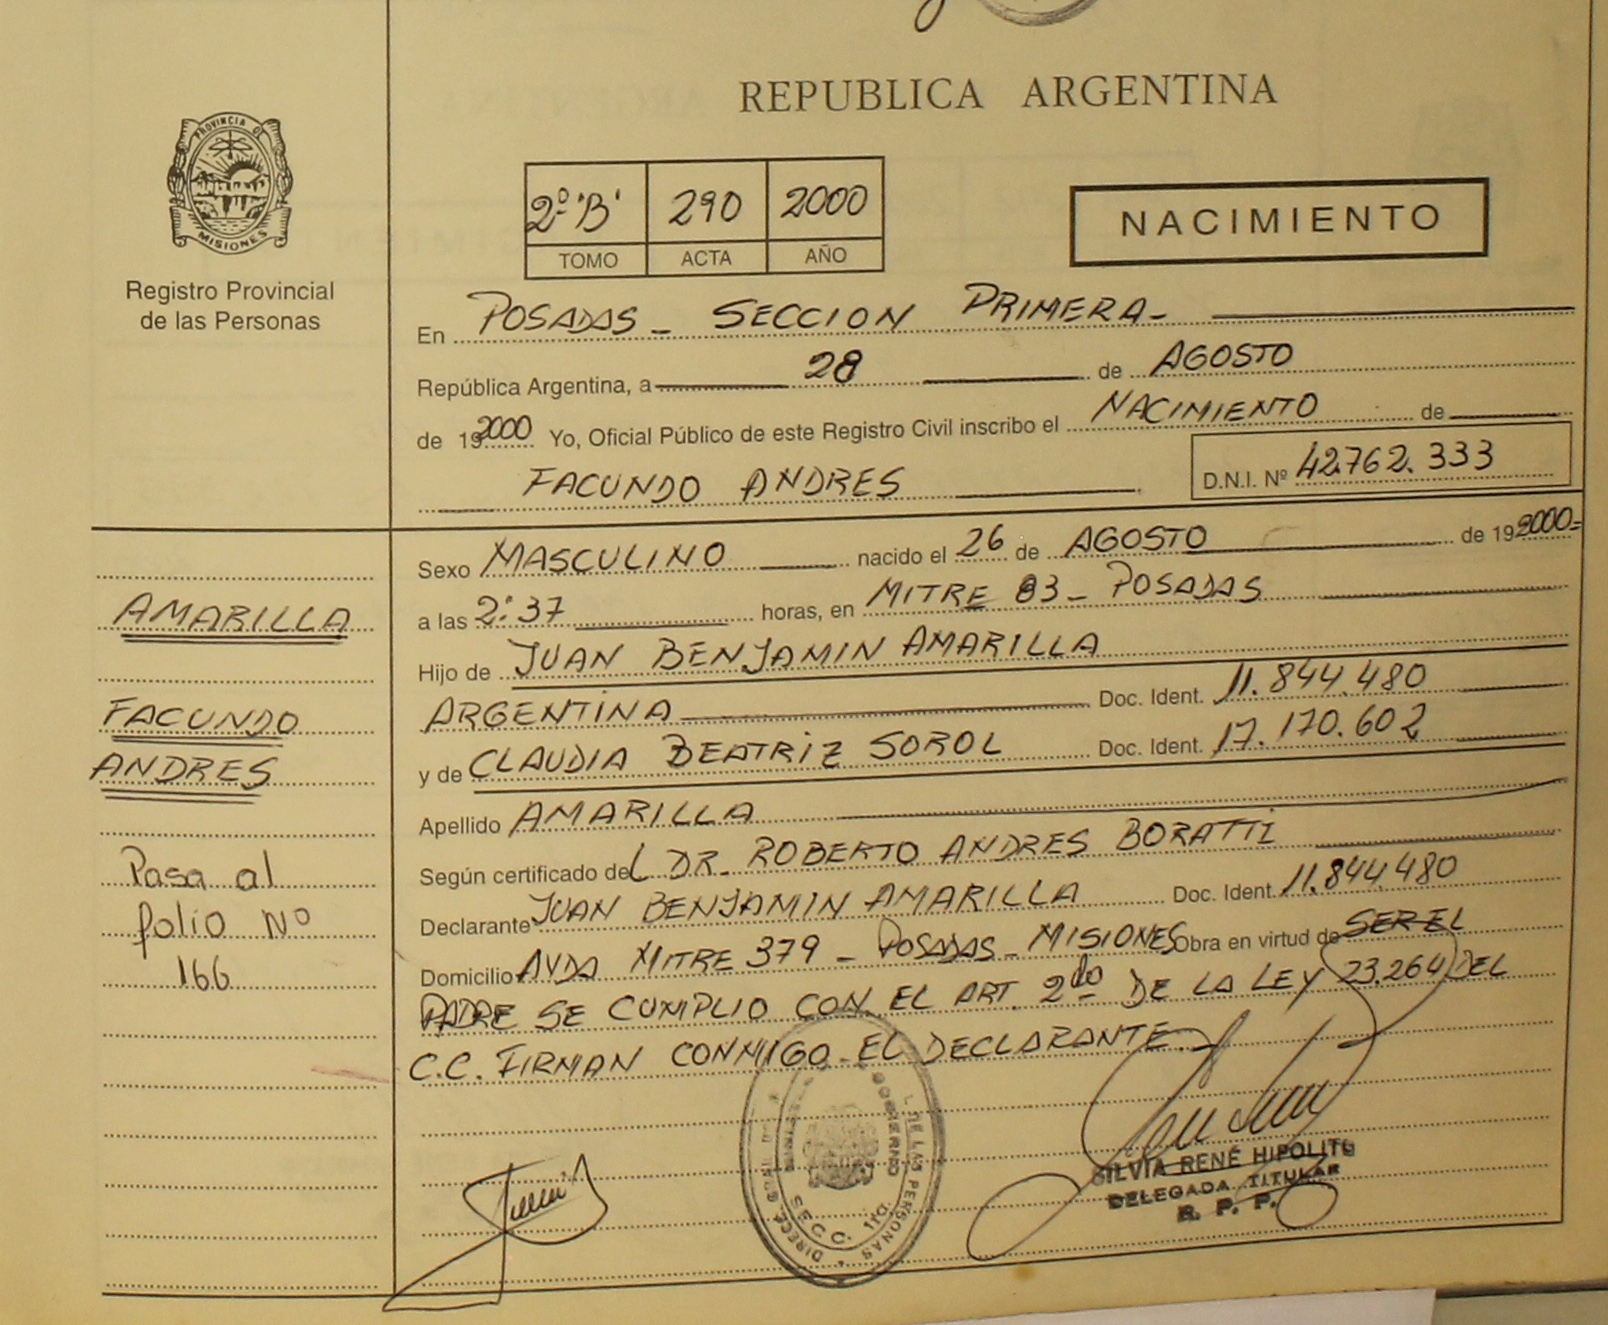 REPUBLICA ARGENTINA
PROVINCIA DE
MISIONES
Registro Provincial
de las Personas
2º "B" 290 2000
TOMO ACTA AÑO
NACIMIENTO
En POSADAS - SECCION PRIMERA-
República Argentina, a 28 de AGOSTO
de 19 2000 Yo, Oficial Público de este Registro Civil inscribo el NACIMIENTO de
FACUNDO ANDRES D.N.I. Nº 42.762.333
Sexo MASCULINO nacido el 26 de AGOSTO de 19 2000-
a las 2:37 horas, en MITRE 83 - POSADAS
Hijo de JUAN BENJAMIN AMARILLA
ARGENTINA Doc. Ident. 11.844.480
y de CLAUDIA BEATRIZ SOROL Doc. Ident. 17.170.602
Apellido AMARILLA
Según certificado del DR. ROBERTO ANDRES BORATTI
Declarante JUAN BENJAMIN AMARILLA Doc. Ident. 11.844.480
Domicilio AVDA MITRE 379 - POSADAS - MISIONES Obra en virtud de SER EL
PADRE SE CUMPLIO CON EL ART. 2do DE LA LEY 23.264 DEL
C.C. FIRMAN CONMIGO EL DECLARANTE.-
AMARILLA
FACUNDO
ANDRES
Pasa al
folio Nº
166
SECC. 1ra.
SILVIA RENÉ HIPOLITO
DELEGADA TITULAR
R. P. P.